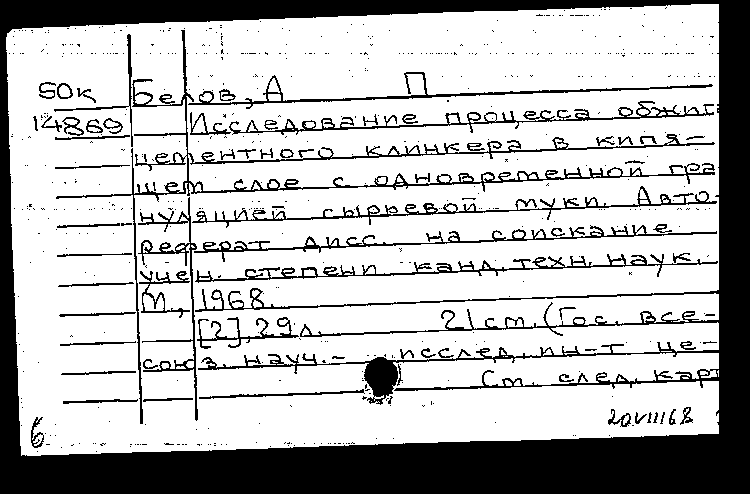 50к Белов, А П
14869 Исследование процесса обжига
цементного клинкера в кипя-
щем слое с одновременной гра
нуляцией сырьевой муки. Авто-
реферат дисс. на соискание
учен. степени канд. техн. наук.
М., 1968.
[2], 29 л. 21 см. (Гос. все-
союз. науч.- исслед. ин-т це-
См. след. карт
20VIII68
б